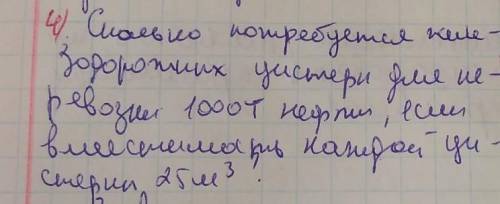 4). Сколько потребуется желе-
зодорожних цистерн для пе-
ревозки 1000т нефти, если
вместимость каждой ци-
стерны 25м³?